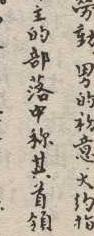 劳動男的称意大约指
主的部落中称其首領